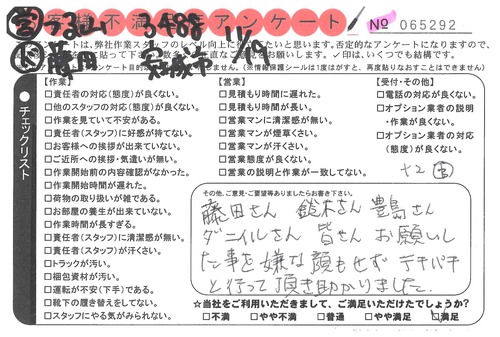 お客様不満足度アンケート
№ 065292
3488
藤田
チェックリスト
【作業】
□責任者の対応(態度)が良くない。
□他のスタッフの対応(態度)が良くない。
□作業を見ていて不安がある。
□責任者(スタッフ)に好感が持てない。
□お客様への挨拶が出来ていない。
□ご近所への挨拶・気遣いが無い。
□作業開始前の内容確認がなかった。
□作業開始時間が遅れた。
□荷物の取り扱いが雑である。
□お部屋の養生が出来ていない。
□作業時間が長すぎる。
□責任者(スタッフ)に清潔感が無い。
□責任者(スタッフ)が汗くさい。
□トラックが汚い。
□梱包資材が汚い。
□運転が不安(下手)である。
□靴下の履き替えをしてない。
□スタッフにやる気がみられない。
【営業】
□見積もり時間に遅れた。
□見積もり時間が長い。
□営業マンに清潔感が無い。
□営業マンが煙草くさい。
□営業マンが汗くさい。
□営業態度が良くない。
□営業の説明と作業が一致してない。
【受付・その他】
□電話の対応が良くない。
□オプション業者の説明
・作業が良くない。
□オプション業者の対応
(態度)が良くない。
その他、ご意見・ご要望等ありましたらお書き下さい。
藤田さん 鈴木さん 豊島さん
ダニイルさん 皆さん お願いし
た事を嫌な顔もせず テキパキ
と行って頂き助かりました.
☆当社をご利用いただきまして、ご満足いただけたでしょうか?
□不満 □やや不満 □普通 □やや満足 □満足